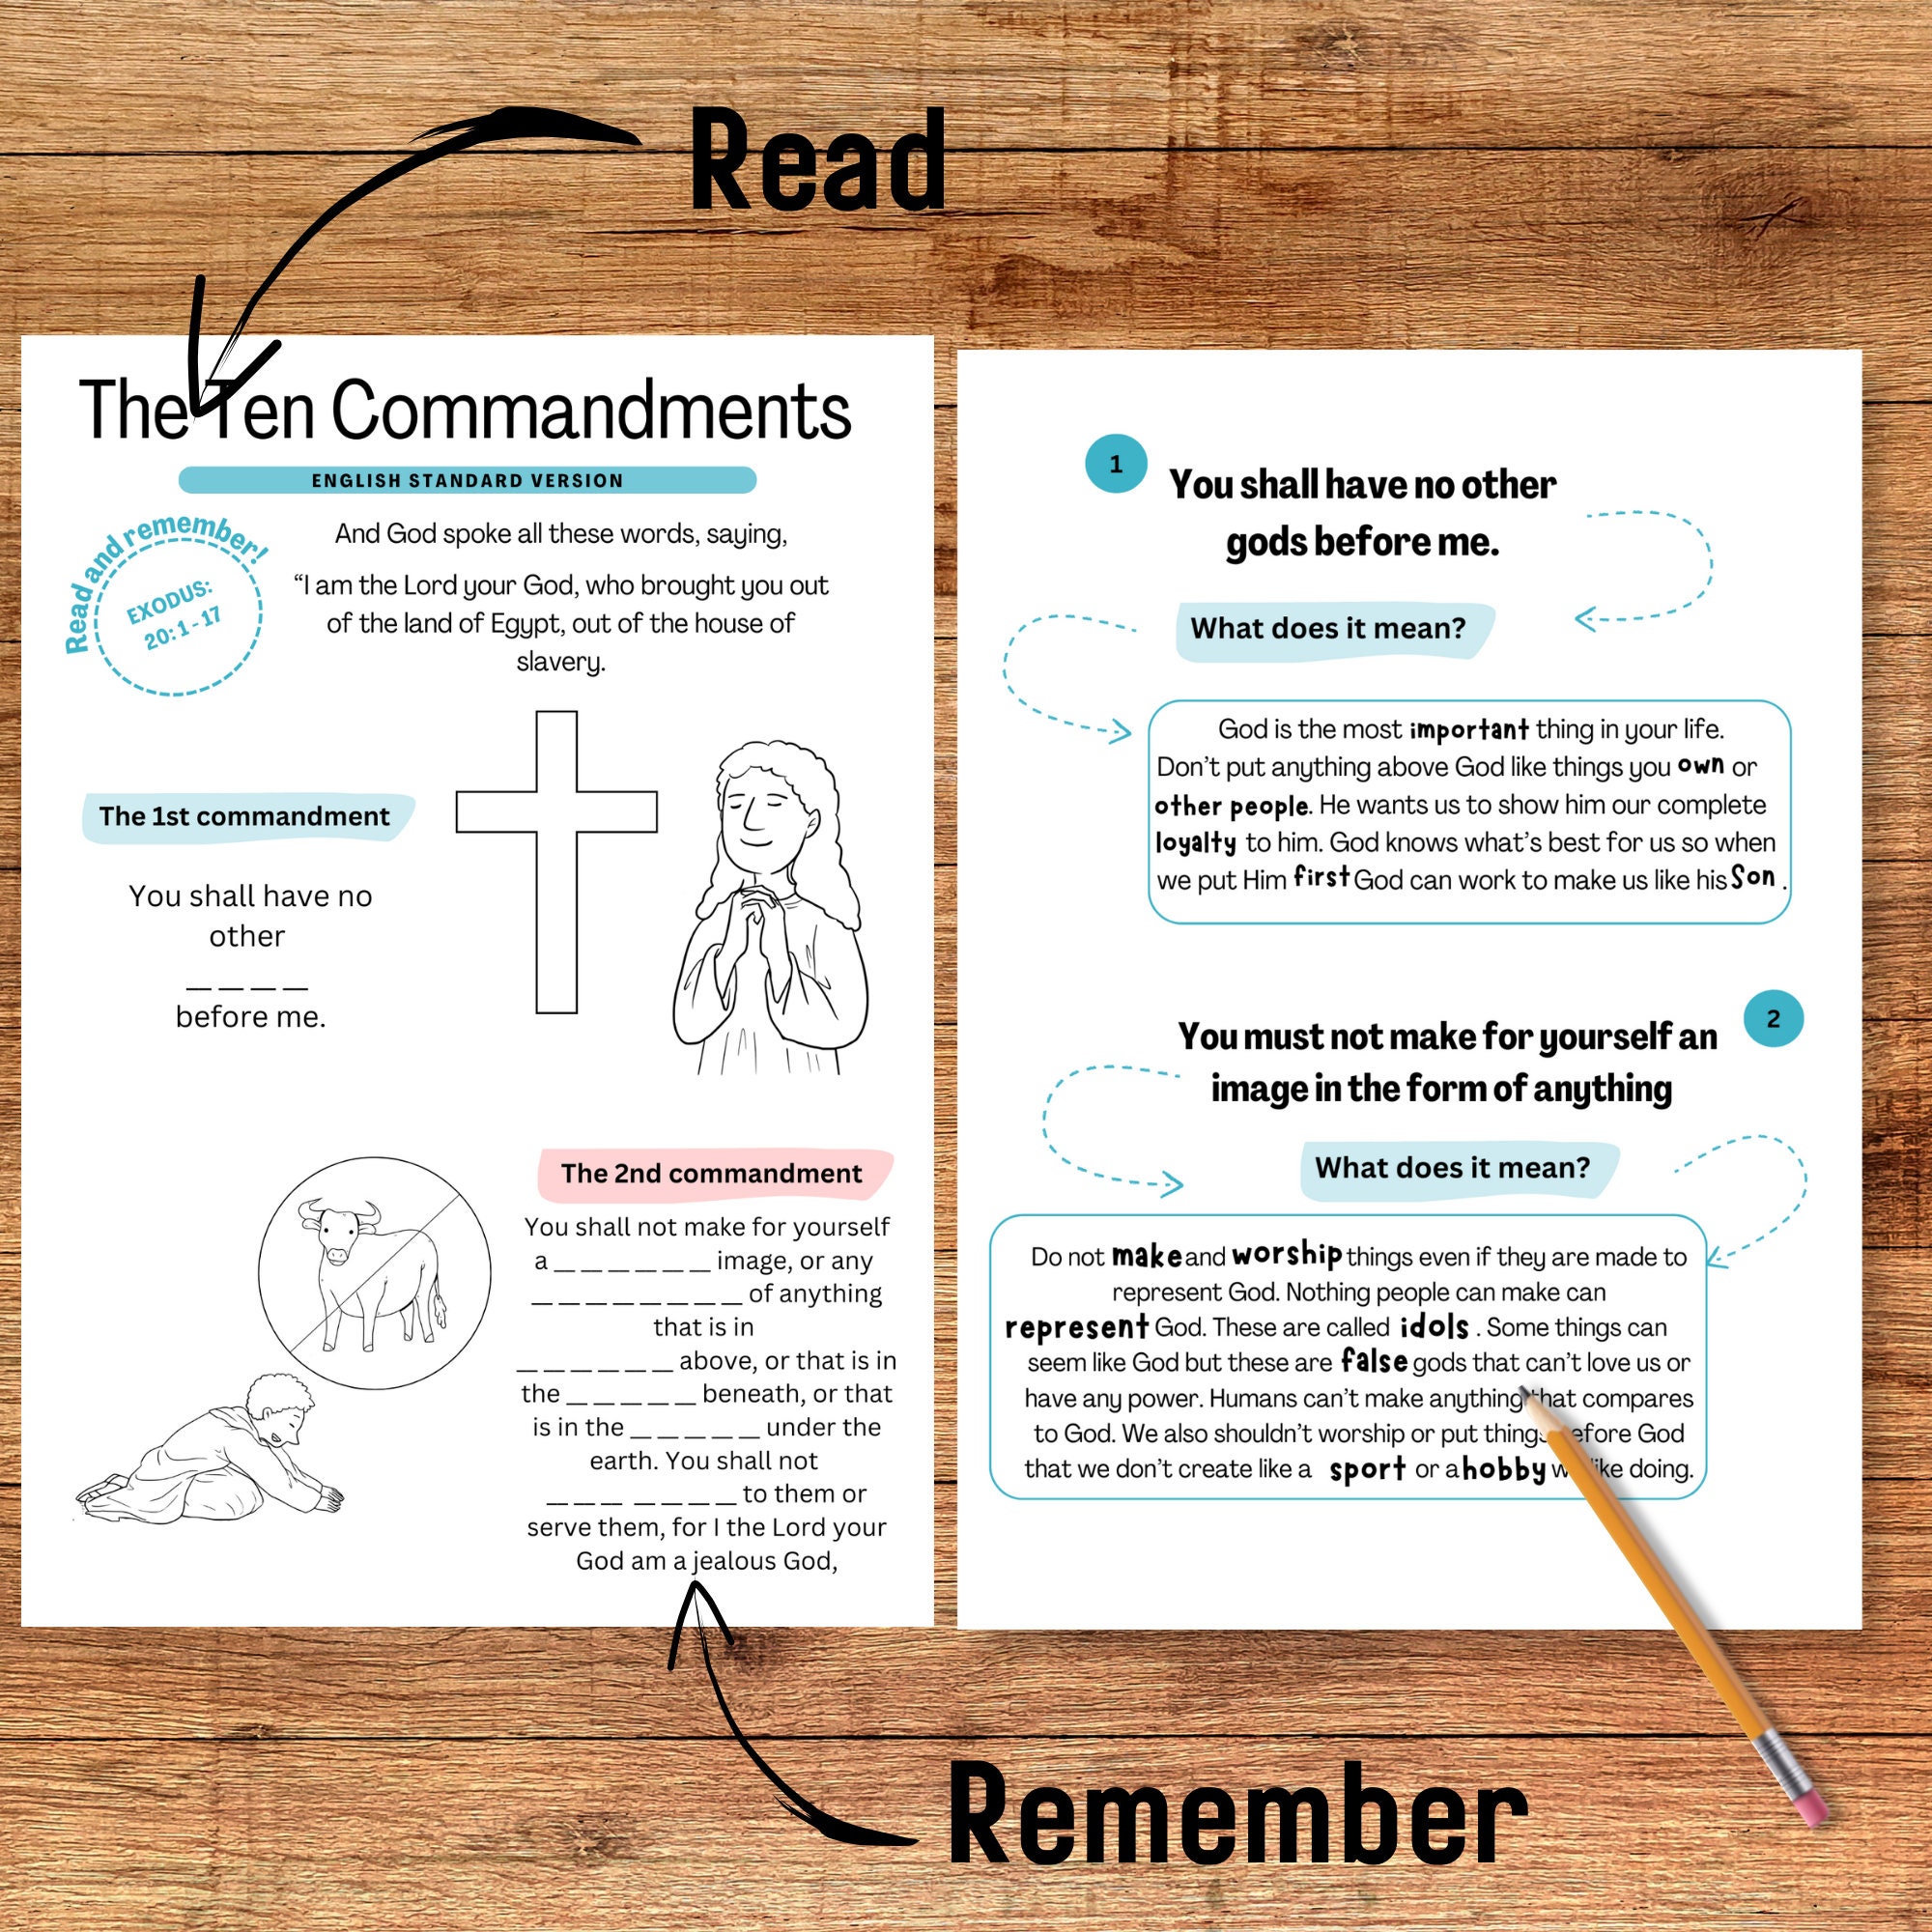 Read
The Ten Commandments
ENGLISH STANDARD VERSION
Read and remember!
EXODUS:
20:1-17
And God spoke all these words, saying,
“I am the Lord your God, who brought you out
of the land of Egypt, out of the house of
slavery.
The 1st commandment
You shall have no
other
__ __ __ __
before me.
The 2nd commandment
You shall not make for yourself
a __ __ __ __ __ __ image, or any
__ __ __ __ __ __ __ __ of anything
that is in
__ __ __ __ __ __ above, or that is in
the __ __ __ __ __ beneath, or that
is in the __ __ __ __ __ under the
earth. You shall not
__ __ __ __ __ __ __ to them or
serve them, for I the Lord your
God am a jealous God,
1
You shall have no other
gods before me.
What does it mean?
God is the most important thing in your life.
Don’t put anything above God like things you own or
other people. He wants us to show him our complete
loyalty to him. God knows what’s best for us so when
we put Him first God can work to make us like his Son .
2
You must not make for yourself an
image in the form of anything
What does it mean?
Do not make and worship things even if they are made to
represent God. Nothing people can make can
represent God. These are called idols . Some things can
seem like God but these are false gods that can’t love us or
have any power. Humans can’t make anything that compares
to God. We also shouldn’t worship or put things before God
that we don’t create like a sport or a hobby we like doing.
Remember